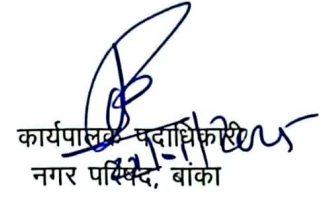 कार्यपालक पदाधिकारी
नगर परिषद, बांका